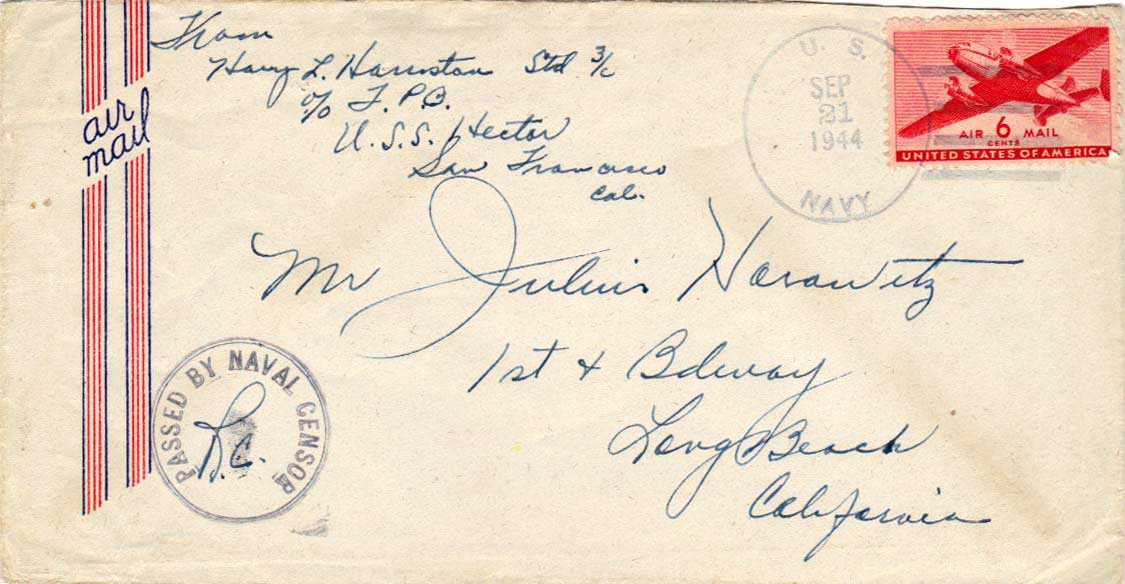 From
Harry L. Harriston Std 3/c
c/o F. P. O.
U.S.S. Hector
San Francisco
Cal.
air
mail
U. S.
SEP
21
1944
NAVY
AIR 6 MAIL
CENTS
UNITED STATES OF AMERICA
Mr Julius Horowitz
1st + Bdway
Long Beach
California
PASSED BY NAVAL CENSOR
R.C.